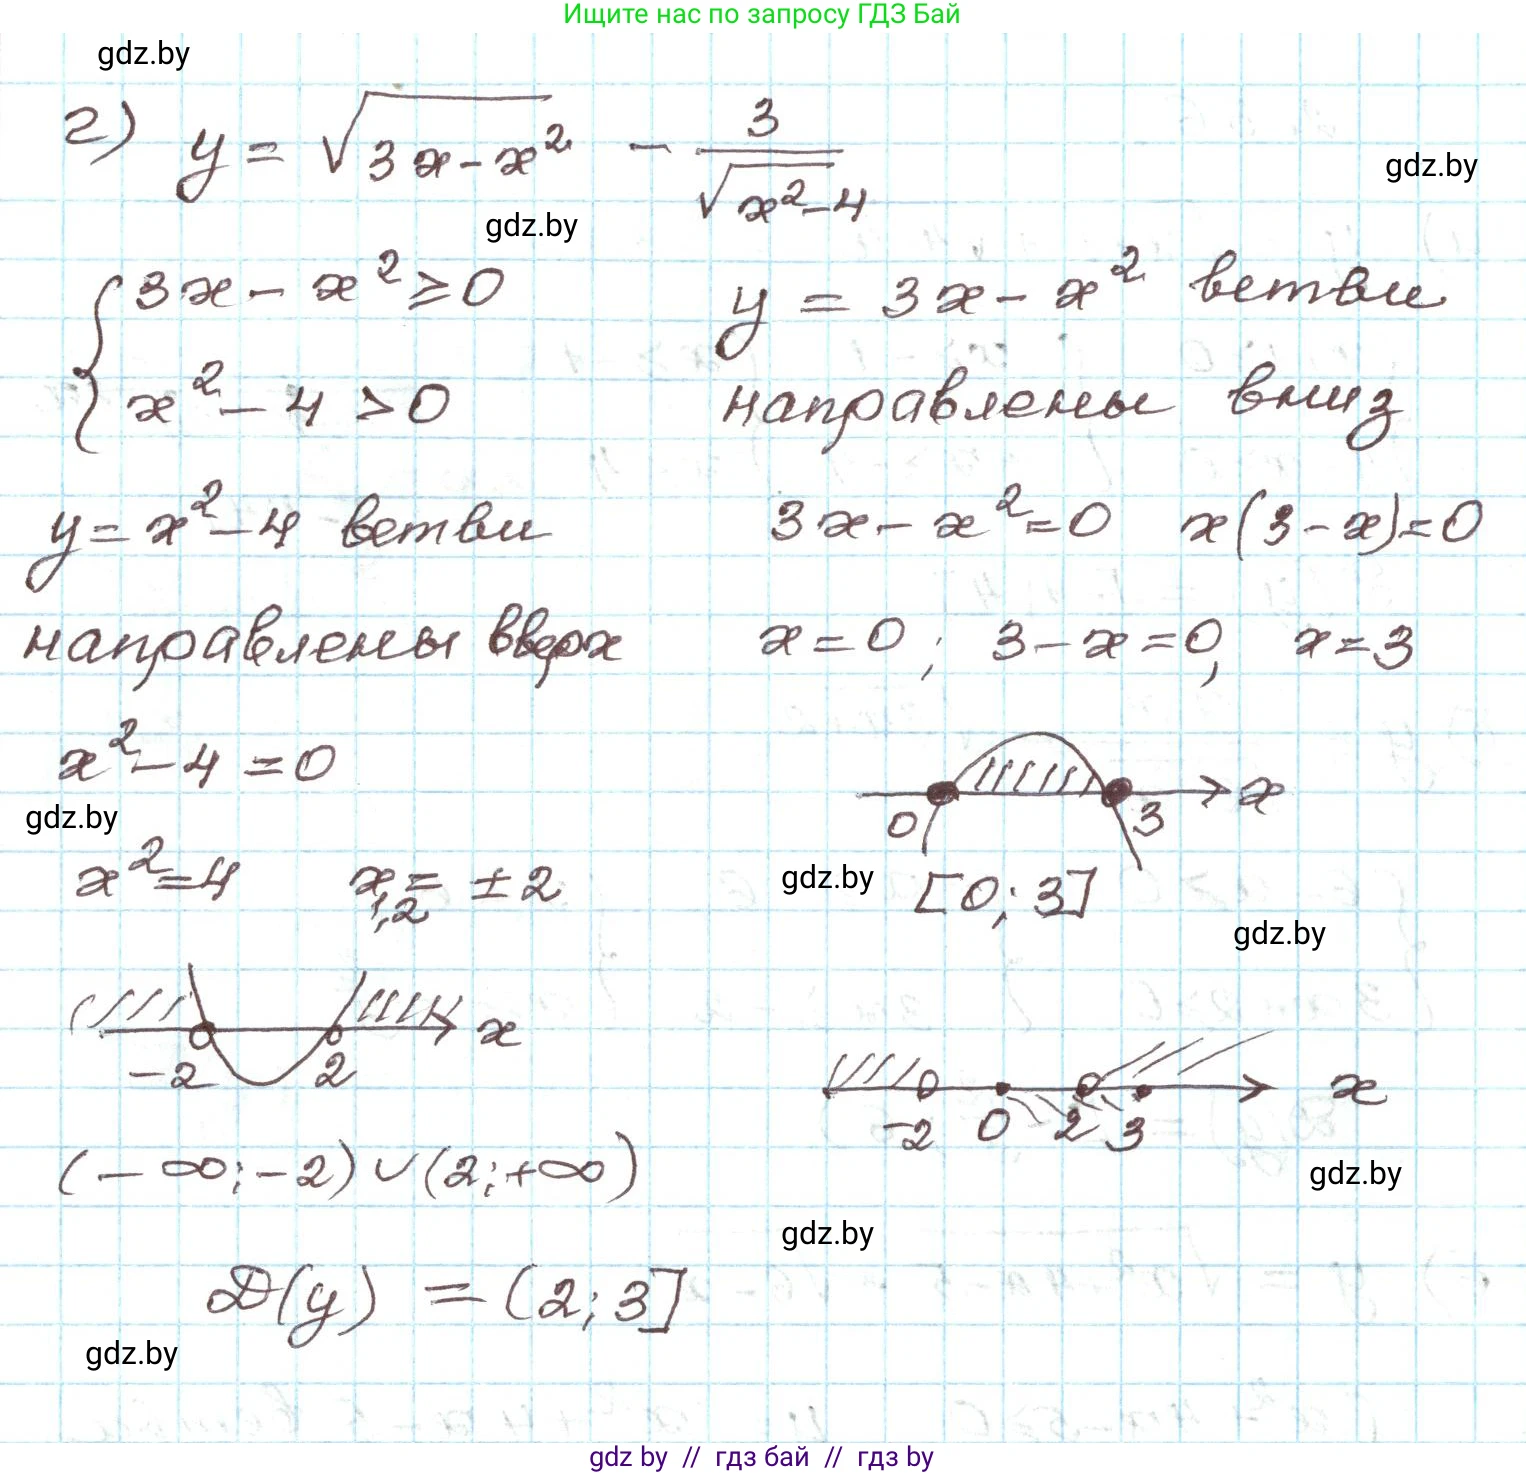 Ищите нас по запросу ГДЗ Бай
gdz.by
г) y = √(3x - x²) - 3/√(x² - 4)
gdz.by
gdz.by
{ 3x - x² ≥ 0
x² - 4 > 0
y = 3x - x² ветви
направлены вниз
y = x² - 4 ветви
направлены вверх
3x - x² = 0 x(3 - x) = 0
x = 0; 3 - x = 0, x = 3
x² - 4 = 0
gdz.by
x² = 4 x₁,₂ = ± 2
0 3 x
gdz.by
[0; 3]
gdz.by
-2 2 x
-2 0 2 3 x
(-∞; -2) ∪ (2; +∞)
gdz.by
gdz.by
D(y) = (2; 3]
gdz.by
gdz by // гдз бай // гдз by